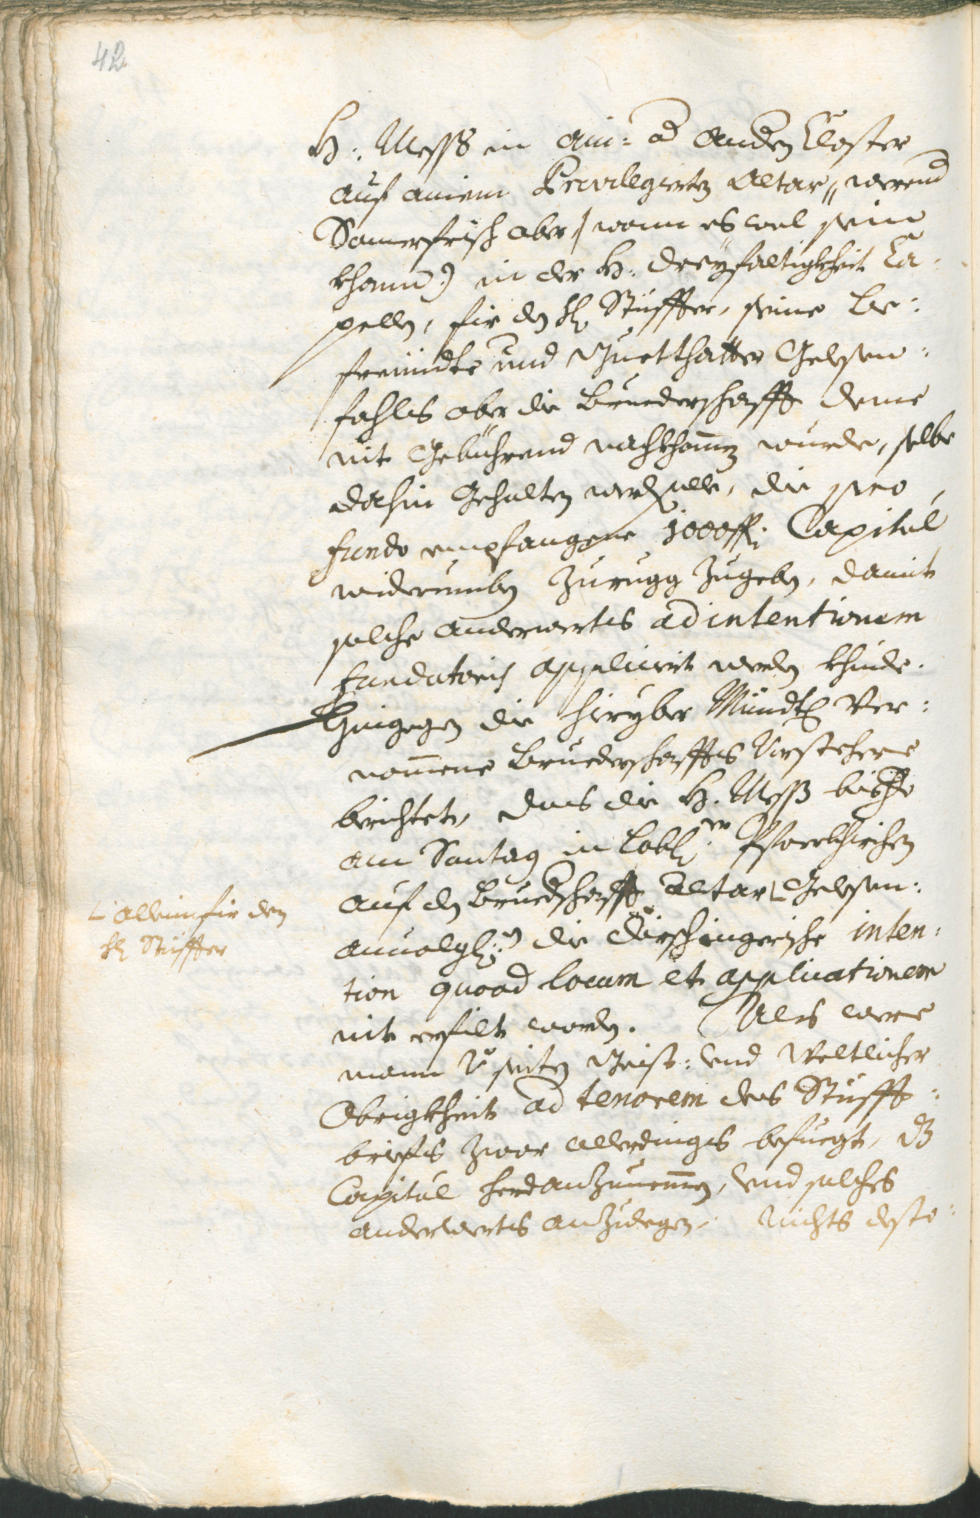 42
H: Mess in ain: od anden Closter
auf ainem Privilegierten Altar, werend
Somerfrisch aber /: wann es wol sein
khann :) in der H: Dreyfaltigkheit Ca-
pellen, für den H: Stüffter, seine Be-
freündte und Guetthatter Gelesen:
fahls aber die Bruederschafft deme
nit Gebührend nachkhomen wurde, selbe
dahin Gehalten werden solle, die pro
fundo empfangene 1000 fl: Capital
widerumben zurugg zugeben, damit
solche anderwerts ad intentionem
fundatoris appliciert werden khinde.
Hingegen die hieryber Mündtl: Ver-
nomene Bruederschaffts Vorstehere
berichten, das die H: Mess bishero
am Sontag in Lobl: Pfarrkhirchen
auf den Bruedschafft Altar Gelesen:
L: allein für den
H: Stüffter
annolgl: die Dörschingerische inten-
tion quoad locum et applicationem
nit erfült worden. Als were
mann V: seiten Geist: und Weltlicher
Obrigkheit ad tenorem des Stüfft-
briefs zwar allerdings befuegt, dz
Capital herdanzunemen, und solches
anderwerts anzulegen. Nichts desto-